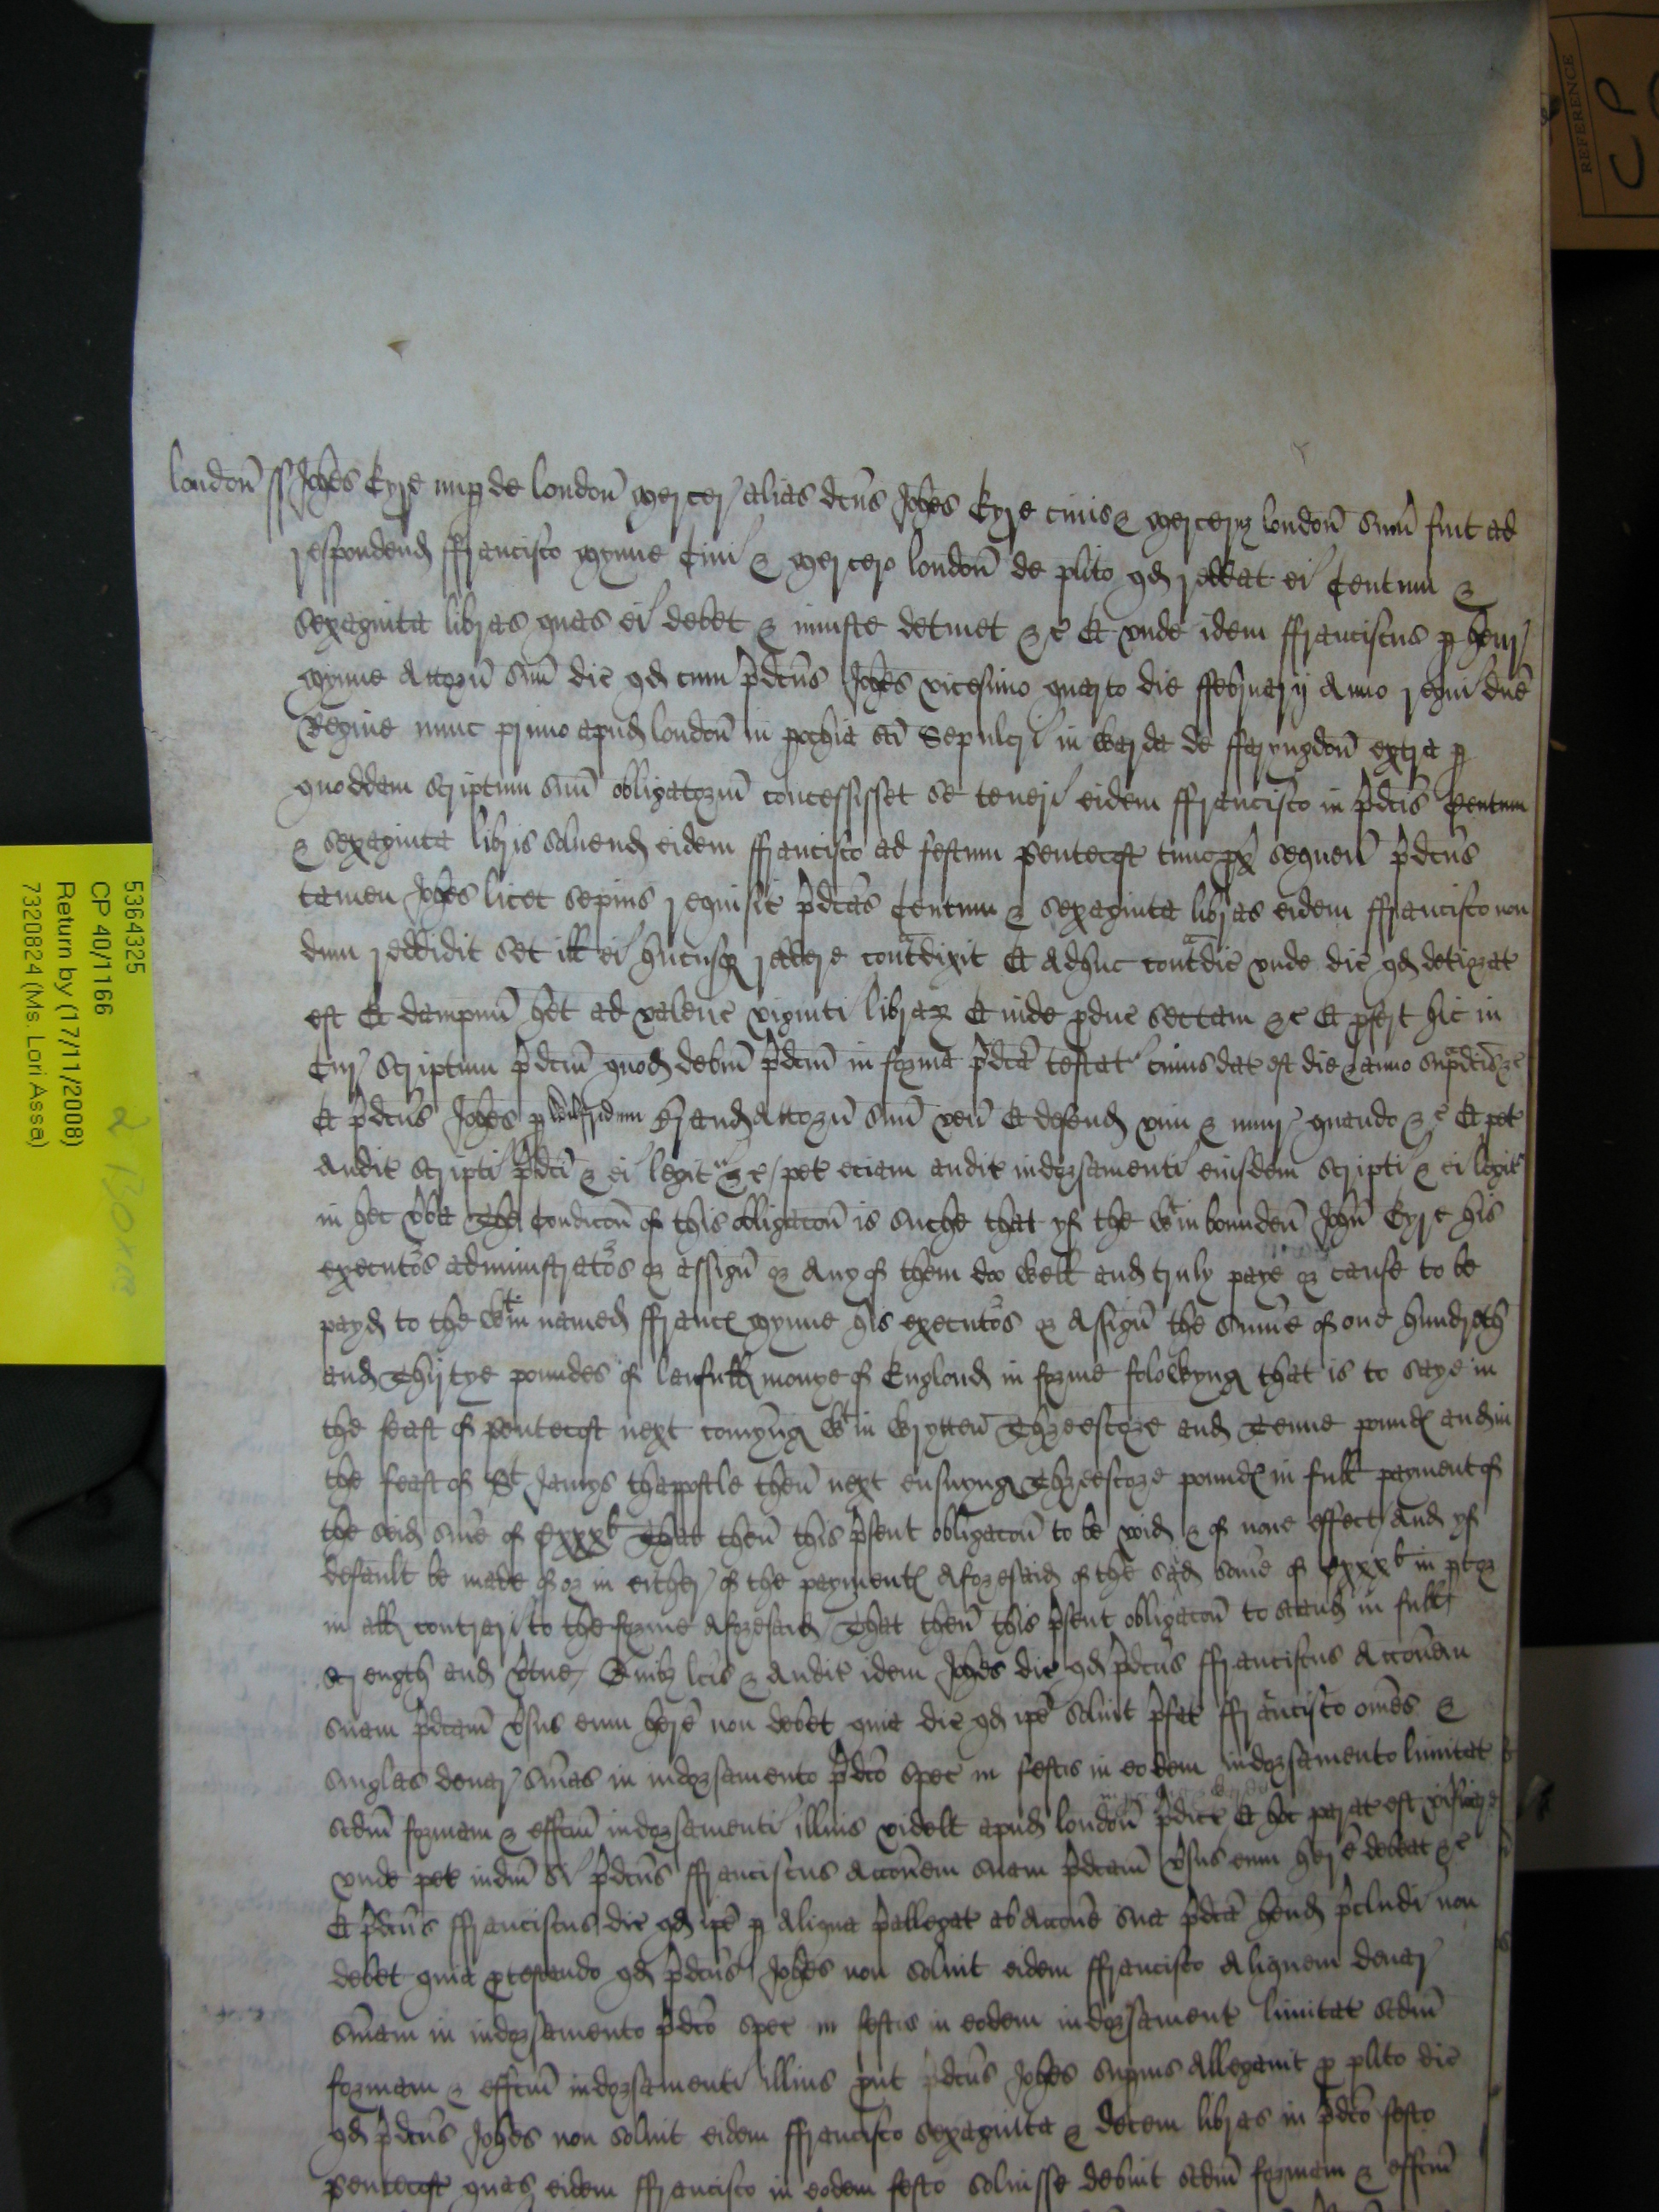 REFERENCE
C P
5364325
CP 40/1166
Return by (17/11/2008)
7320824 (Ms. Lori Assa)
london ss Johes Eyre nup de london mercer alias dcus Johes Eyre civis & mercerus london sum fuit ad
respondend ffrancisco Mynne Civi & mercero london de plito qd reddat ei Centum &
sexaginta libras quas ei debet & iniuste detinet &c Et unde idem ffranciscus p henr
Mynne Attorn suu dic qd cum pdcus Johes vicesimo quarto die ffebruarij Anno regni dne
Regine nunc primo apud london in pochia sci Sepulcri in warda de ffaryngdon extra p
quoddam scriptum suu obligatoriu concessisset se teneri eidem ffrancisco in pdcis Centum
& sexaginta libris solvend eidem ffrancisco ad festum pentecost tunc px sequen pdcus
tamen Johes licet sepius requisit pdcas Centum & sexaginta libras eidem ffrancisco non
dum reddidit set ill ei hucusq reddere contadixit Et Adhuc contadic unde dic qd deteriorat
est Et dampnu het ad valenc viginti librar Et inde pduc sectam &c Et pfert hic in
Cur scriptum pdcm quod debm pdcm in forma pdca testat cuius dat est die & anno supadcis &c
Et pdcus Johes p Wilfridum Erand Attorn suu ven Et defend vim & iniur quando &c Et pet
Audit scripti pdci & ei legit &c pet eciam audit indorsamenti eiusdem scripti & ei legit
in hec vba The Condicon of this obligacon is suche that yf the wtin bounden John Eyre his
executos administratos or assign or Any of them doo well and truly paye or cause to be
payd to the wtin named ffranc Mynne his executos or Assign the sume of one hundreth
and Thirtye poundes of laufull monye of England in forme folowyng that is to saye in
the feast of pentecost next comyng wtin wrytten Threescore and Tenne pound and in
the feast of St Jamys thappostle then next ensuyng Threescore pound in full payment of
the seid sume of Cxxxli That then this psent obligacon to be void & of none effect And yf
default be made of or in either of the payment Aforesaid of the said some of Cxxxli in pt or
in all contrari to the forme Aforesaid That then this psent obligacon to stand in full
strength and vtue Quibz lcis & Audit idem Johes dic qd pdcus ffranciscus Accoem
suam pdcam vsus eum here non debet quia dic qd ipe solvit pfat ffrancisco omes &
singlas denar sumas in indorsamento pdco spec in festis in eodem indorsamento limitat
scdm formam & effcm indorsamenti illius videlt apud london pdict Et hoc parat est vificare
unde pet iudm si pdcus ffranciscus Accoem suam pdcam vsus eum here debeat &c
Et pdcus ffranciscus dic qd ipe p Aliqua pallegat ab Accoe sua pdca hend pcludi non
debet quia ptestando qd pdcus Johes non solvit eidem ffrancisco Aliquam denar
sumam in indorsamento pdco spec in festis in eodem indorsament limitat scdm
formam & effcm indorsamenti illius put pdcus Johes supius Allegavit p plito dic
qd pdcus Johes non solvit eidem ffrancisco sexaginta & decem libras in pdco festo
pentecost quas eidem ffrancisco in eodem festo solvisse debuit scdm formam & effcm